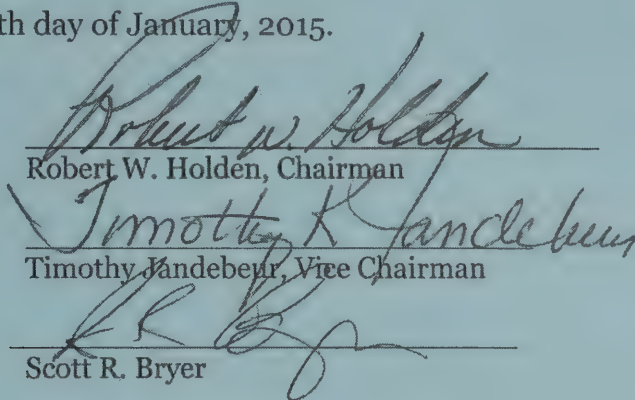 th day of January, 2015.
Robert W. Holden
Robert W. Holden, Chairman
Timothy K Jandebeur
Timothy Jandebeur, Vice Chairman
Scott R. Bryer